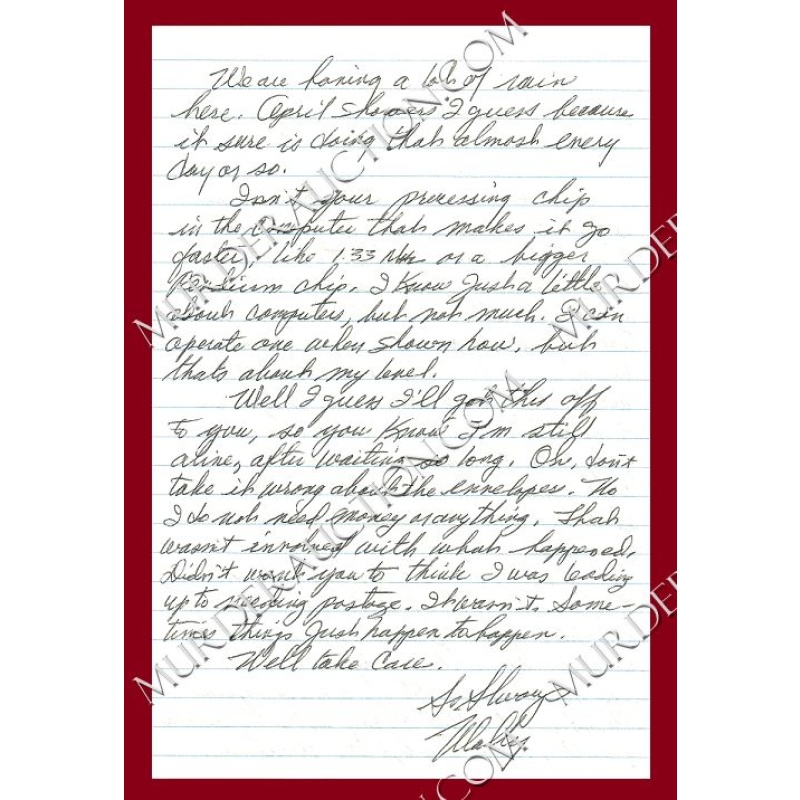 We are having a lot of rain
here. April showers I guess because
it sure is doing that almost every
day or so.
Isn't your processing chip
in the computer that makes it go
faster, like 1.33 or a bigger
Pentium chip. I know just a little
about computers, but not much. I can
operate one when shown how, but
thats about my level.
Well I guess I'll get this off
to you, so you know I'm still
alive, after waiting so long. Oh, don't
take it wrong about the envelopes. No
I do not need money or anything. That
wasn't involved with what happened.
Didn't want you to think I was leading
up to needing postage. It wasn't. Some-
times things just happen to happen.
Well take care.
As Always
MURDERAUCTION.COM
MURDERAUCTION.COM
MURDERAUCTION.COM
MURDERAUCTION.COM